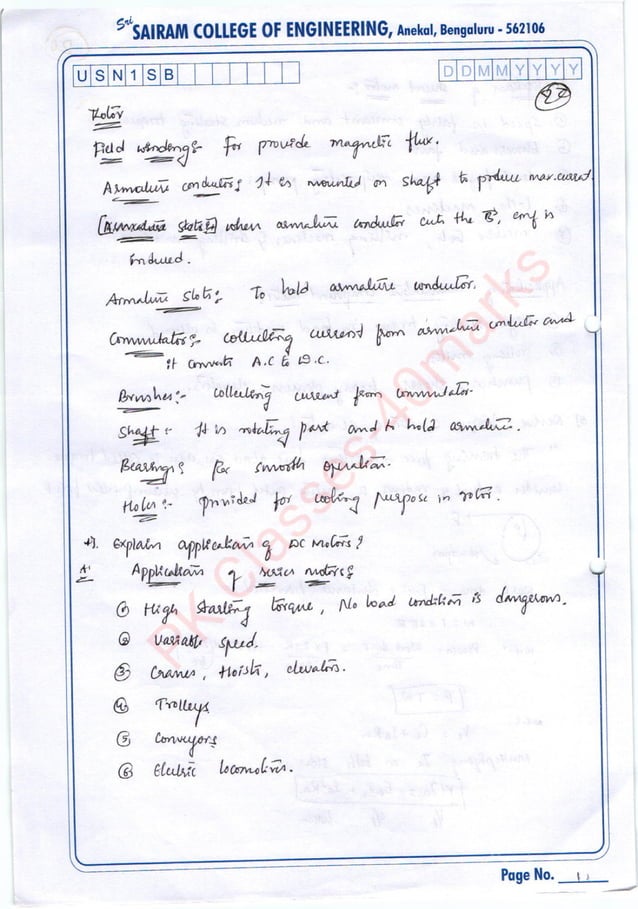 Sri SAIRAM COLLEGE OF ENGINEERING, Anekal, Bengaluru - 562106
U S N 1 S B
D D M M Y Y Y Y
22
Rotor
Field windings:- For provide magnetic flux.
Armature conductor: It is mounted on shaft to produce max. current.
[Armature slots:-] when armature conductor cuts the emf is
induced.
Armature slots:- To hold armature conductor.
Commutator:- collecting current from armature conductor and
it converts A.C to D.C.
Brushes:- collecting current from commutator.
Shaft:- It is rotating part and to hold armature.
Bearings: for smooth operation.
Holes:- Provided for cooling purpose in rotor.
Explain application of DC Motors?
A: Applications of series motors:
① High starting torque, No load condition is dangerous.
② Variable speed.
③ Cranes, Hoists, elevators.
④ Trolleys
⑤ Conveyors
⑥ Electric locomotives.
PK Classes-40marks
Page No.